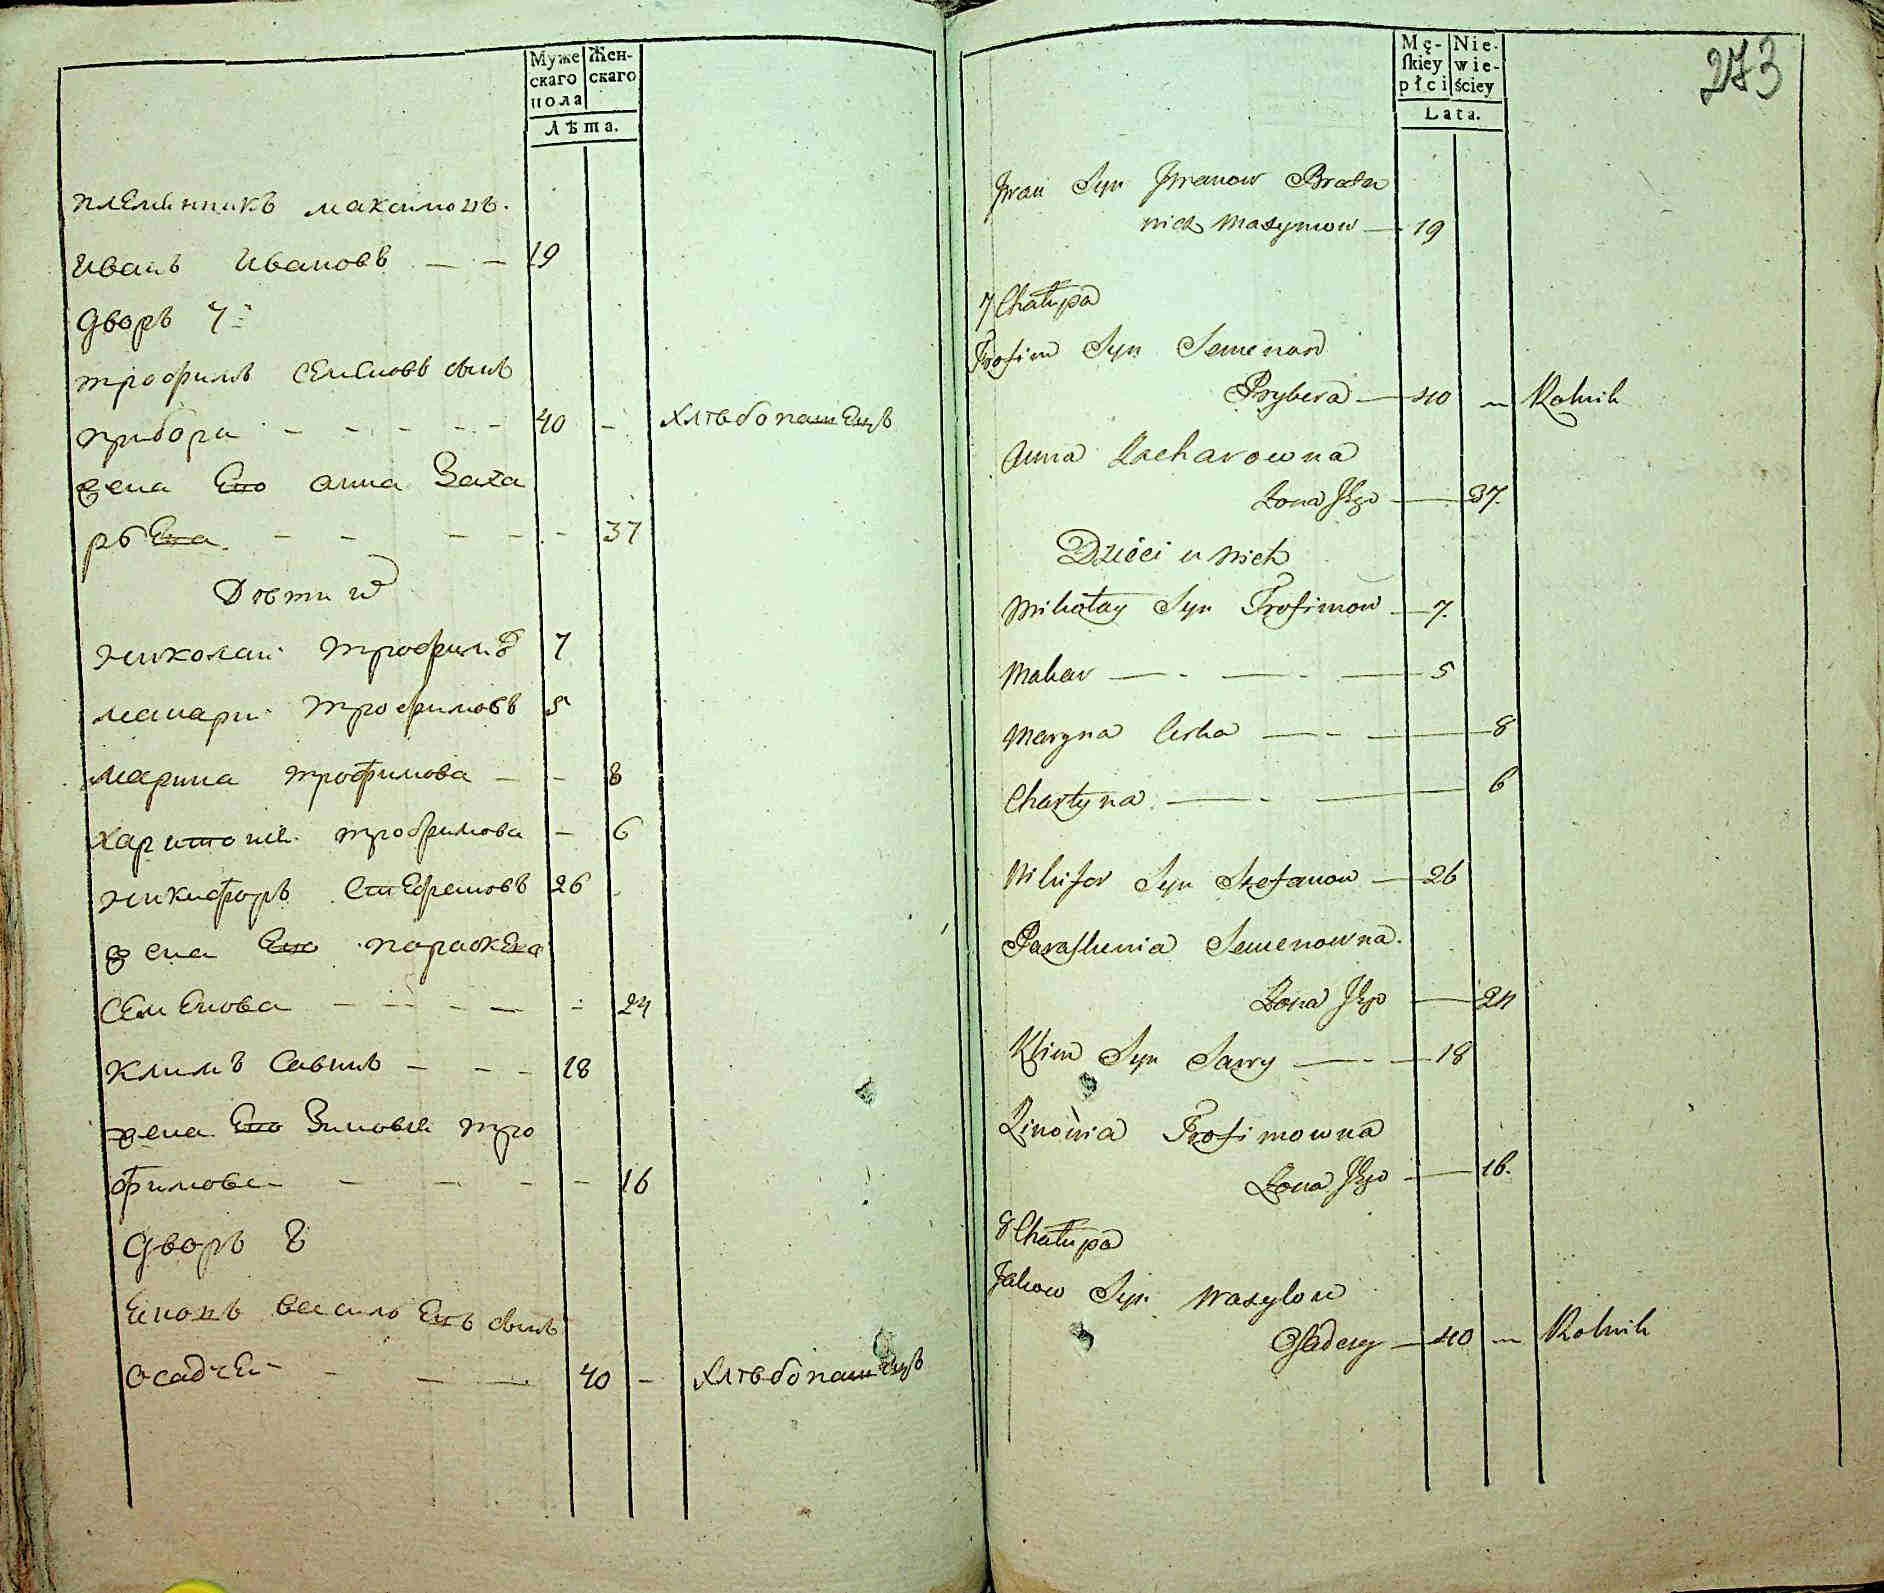 Муже
скаго
пола
Жен-
скаго
Лѣта.
племенникъ максимовъ.
Иванъ Ивановъ — — 19
Дворъ 7й
трофимъ Семеновъ сынъ
прибора - - - - - 40 - хлѣбопашецъ
жена Его анна Заха
рьева - - - - - 37
Дѣти их
николай трофимовъ 7
макаръ трофимовъ 5
марина трофимова - - 8
харитонія трофимова - 6
никифоръ Стефановъ 26
жена Его параскева
Семенова - - - - - 24
климъ Савинъ - - - 18
жена Его Зиновія тро
фимова - - - - 16
Дворъ 8
Яковъ васильевъ сынъ
осадчей - - - 40 - хлѣбопашецъ
273
Mę-
skiey
płci
Nie-
wie-
ściey
Lata.
Jwan Syn Jwanow Brata
nick Maxymow — 19
7 Chałupa
Trofim Syn Semenow
Prybera — 40 — Rolnik
Anna Zacharowna
Żona Jego — 37.
Dzieci u nich
Mikołay Syn Trofimow — 7.
Makar — - — - — 5
Maryna Corka — - — 8
Charytyna — - — 6
Nikifor Syn Stefanow — 26
Paraskewia Semenowna.
Żona Jego — 24
Klim Syn Sawy — - — 18
Zinowia Trofimowna
Żona Jego — 16.
8 Chałupa
Jakow Syn Wasylow
Osadczy — 40 — Rolnik